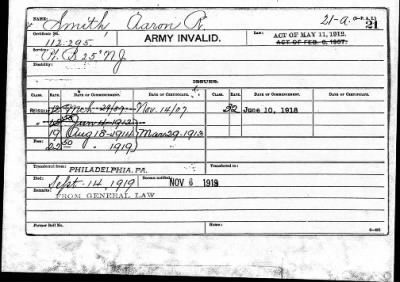 NAME: Smith, Aaron R. 21-a. (3-P. A. I.) 21
Certificate No. 112.295. ARMY INVALID. Law: ACT OF MAY 11, 1912.
ACT OF FEB. 6, 1907.
Service: K. B 25" N.J.
Disability:
ISSUES.
CLASS. RATE. DATE OF COMMENCEMENT. DATE OF CERTIFICATE. CLASS. RATE. DATE OF COMMENCEMENT. DATE OF CERTIFICATE.
Reissue 12 Mch. 29/07 Nov. 14/07 32 June 10, 1918
" Jan 4 1912
19 Aug 18-1914 Mar 29. 1913
Fees: 22 50 " 1919
Transferred from PHILADELPHIA, PA. Transferred to
Died: Sept. 14, 1919 NOV 6 1919
Remarks: FROM GENERAL LAW
Former Roll No. Home: